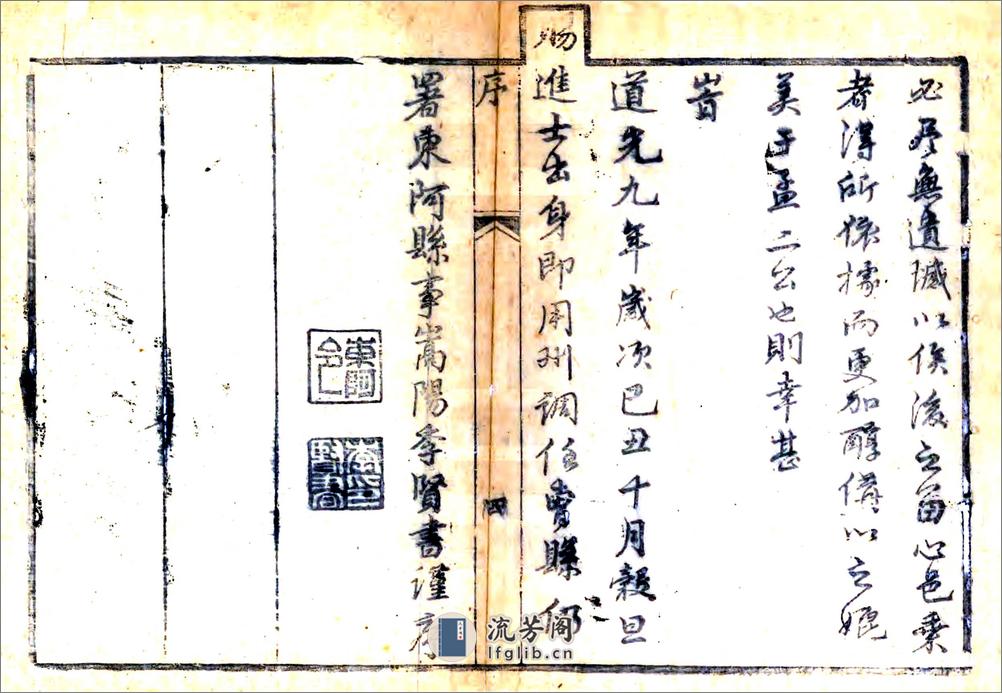 必尽無遺憾以俟後之留心邑乘
者得所依據而更加醇備以之媲
美于孟二公也則幸甚
旹
道光九年歲次己丑十月穀旦
賜進士出身即用州調任費縣
序
四
署東阿縣事嵩陽李賢書謹序
東阿令
流芳阁
lfglib.cn